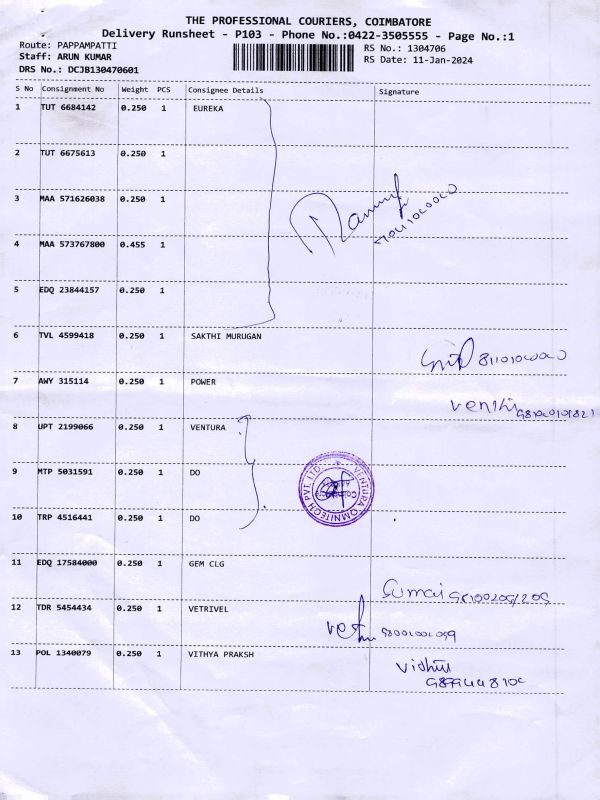 THE PROFESSIONAL COURIERS, COIMBATORE
Delivery Runsheet - P103 - Phone No.:0422-3505555 - Page No.:1
Route: PAPPAMPATTI RS No.: 1304706
Staff: ARUN KUMAR RS Date: 11-Jan-2024
DRS No.: DCJB130470601
S No Consignment No Weight PCS Consignee Details Signature
1 TUT 6684142 0.250 1 EUREKA
2 TUT 6675613 0.250 1
3 MAA 571626038 0.250 1
4 MAA 573767800 0.455 1
5 EDQ 23844157 0.250 1
6 TVL 4599418 0.250 1 SAKTHI MURUGAN
7 AWY 315114 0.250 1 POWER
8 UPT 2199066 0.250 1 VENTURA
9 MTP 5031591 0.250 1 DO
VENTURA OMNITECH PVT. LTD.
10 TRP 4516441 0.250 1 DO
11 EDQ 17584000 0.250 1 GEM CLG
12 TDR 5454434 0.250 1 VETRIVEL
13 POL 1340079 0.250 1 VITHYA PRAKSH